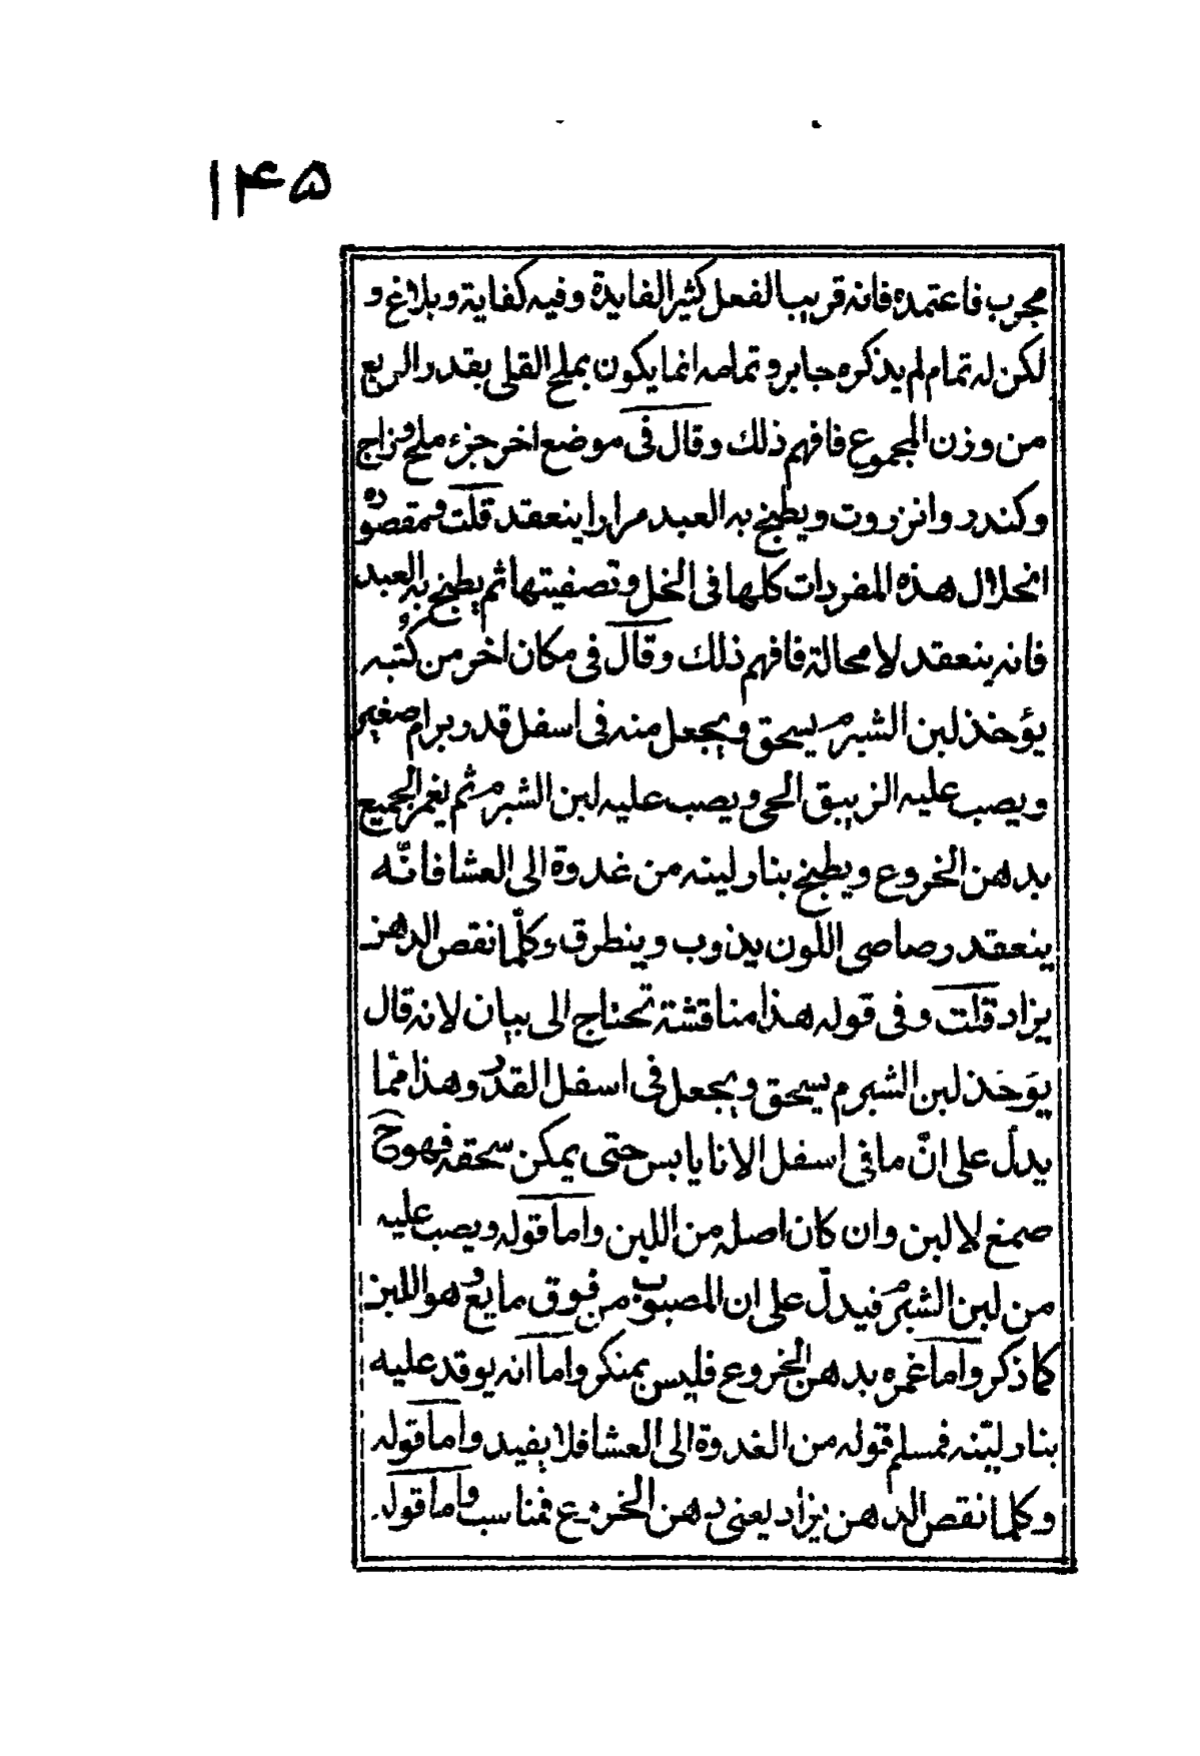 ۱۴۵
مجرب فاعتمده فانه قريب الفعل كثير الفايدة وفيه كفاية وبلاغ و
لكن له تمام لم يذكره جابر وتمامه انما يكون بملح القلى بقدر الربع
من وزن المجموع فافهم ذلك وقال فى موضع اخر جزء ملح وزاج
وكندر وانزروت ويطبخ به العبد مرارا ينعقد قلت ومقصوده
انحلال هذه المفردات كلها فى الخل وتصفيتها ثم يطبخ به العبد
فانه ينعقد لا محالة فافهم ذلك وقال فى مكان اخر من كتبه
يؤخذ لبن الشبرم يسحق ويجعل منه فى اسفل قدر برام صغير
ويصب عليه الزيبق الحى ويصب عليه لبن الشبرم ثم يغمر الجميع
بدهن الخروع ويطبخ بنار لينه من غدوة الى العشا فانّه
ينعقد رصاصى اللون يذوب وينطرق وكلّما نقص الدهن
يزاد قلت وفى قوله هذا مناقشة تحتاج الى بيان لانه قال
يؤخذ لبن الشبرم يسحق ويجعل فى اسفل القدر وهذا ممّا
يدلّ على انّ ما فى اسفل الانا يابس حتى يمكن سحقه فهو ح
صمغ لا لبن وان كان اصله من اللبن واما قوله ويصب عليه
من لبن الشبرم فيدلّ على ان المصبوب من فوق مايع وهو اللبن
كما ذكر واما غمره بدهن الخروع فليس بمنكر واما انه يوقد عليه
بنار ليّنه فمسلم قوله من الغدوة الى العشا فلا يفيد واما قوله
وكلما نقص الدهن يزاد يعنى دهن الخروع فمناسب واما قوله